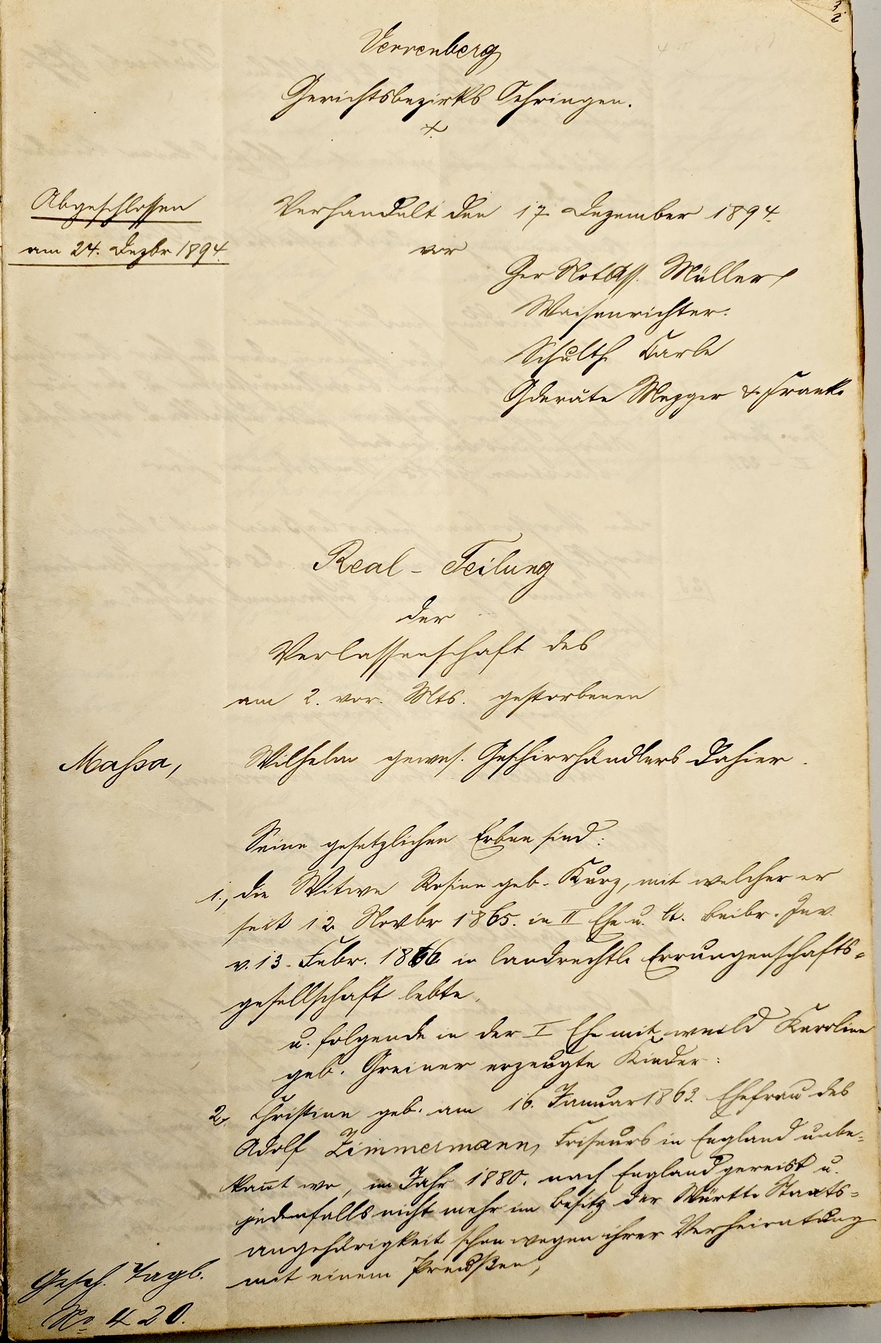 Verrenberg
Gerichtsbezirks Oehringen.
Abgeschlossen
am 24. Dezbr 1894.
Verhandelt den 17 Dezember 1894.
vor
Ger Notass. Müller
Waisenrichter:
Schulth Karle
Gderäte Mezger & Frank.
Real - Teilung
der
Verlassenschaft des
am 2. vor. Mts. gestorbenen
Massa,
Wilhelm gewes. Geschirrhändlers dahier.
Seine gesetzlichen Erben sind:
1., die Witwe Rosine geb. Kurz, mit welcher er
seit 12 Novbr 1865. in II Ehe u. lt. beibr. Inv.
v. 13. Febr. 1866 in landrechtl. Errungenschafts-
gesellschaft lebte,
u. folgende in der I Ehe mit weild Karoline
geb. Greiner erzeugte Kinder:
2, Christine geb. am 16. Januar 1862. Ehefrau des
Adolf Zimmermann, Friseurs in England unbe-
kannt wo, im Jahr 1880. nach England gereist u.
jedenfalls nicht mehr im Besitz der Württ. Staats-
angehörigkeit schon wegen ihrer Verheiratung
mit einem Preußen,
Gesch. Tagb.
No 420.